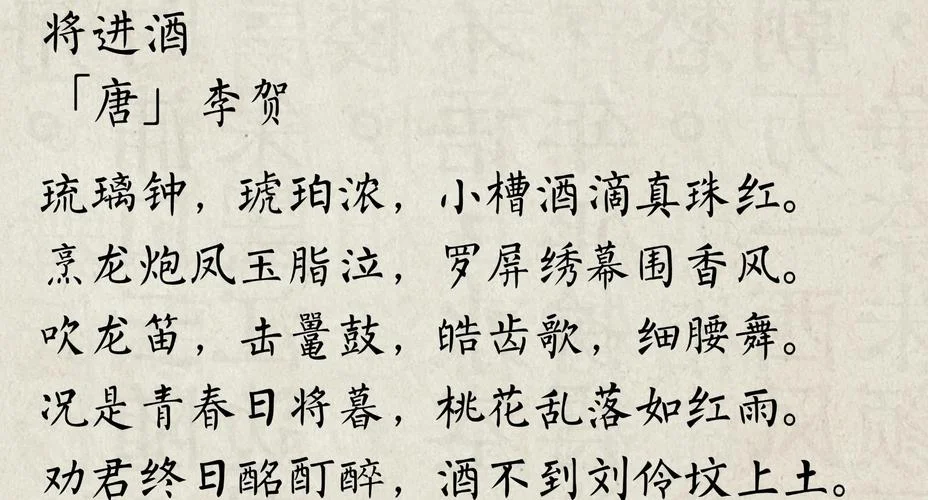 将进酒
「唐」李贺
琉璃钟，琥珀浓，小槽酒滴真珠红。
烹龙炮凤玉脂泣，罗屏绣幕围香风。
吹龙笛，击鼍鼓，皓齿歌，细腰舞。
况是青春日将暮，桃花乱落如红雨。
劝君终日酩酊醉，酒不到刘伶坟上土。